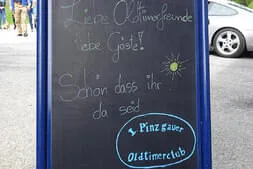 Liebe Oldtimerfreunde
liebe Gäste!
Schön dass ihr
da seid
1. Pinzgauer
Oldtimerclub